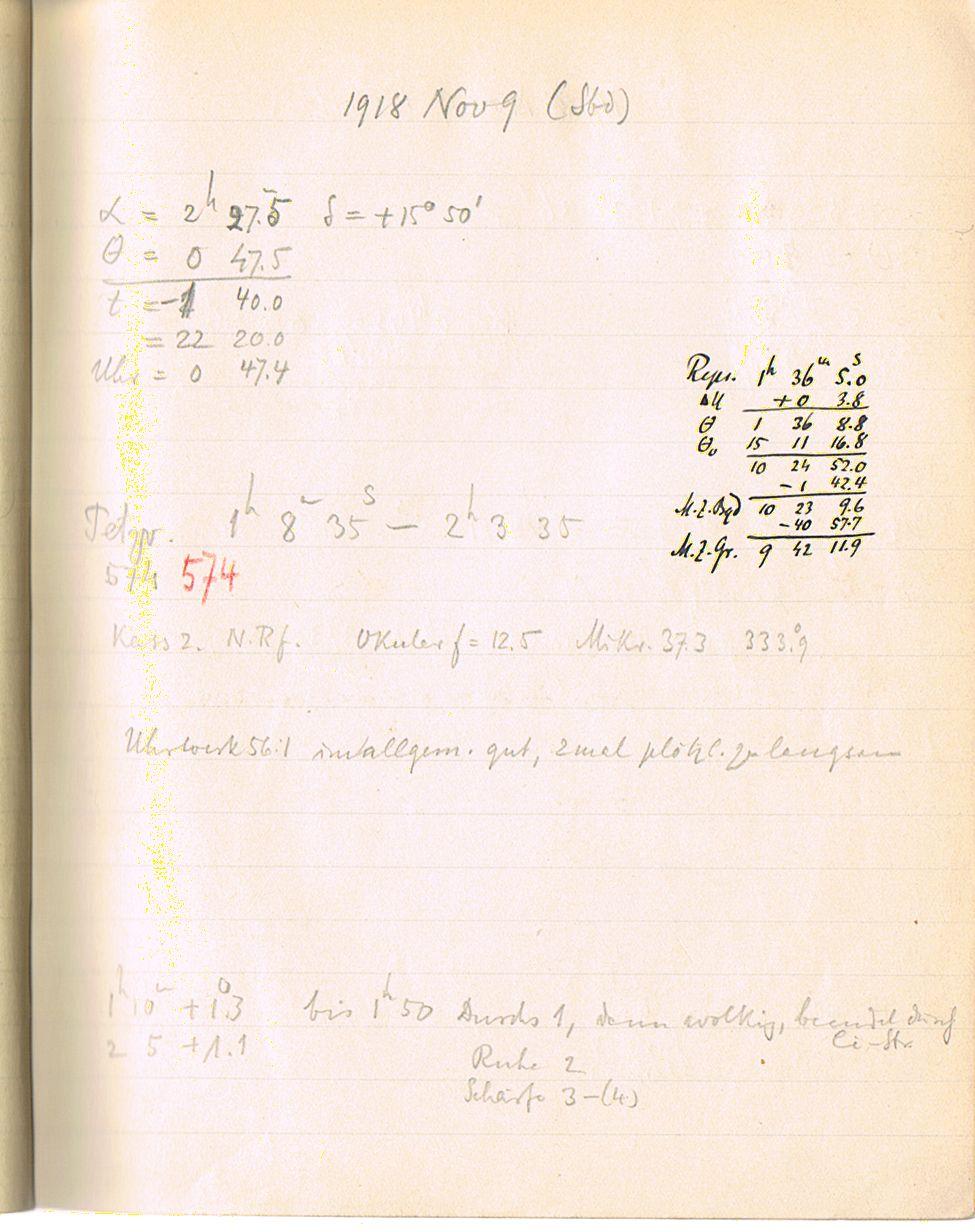 1918 Nov 9 (Sbd)
α = 2ʰ 27.ᵐ5 δ = +15° 50'
θ = 0 47.5
t = -1 40.0
= 22 20.0
Uhr = 0 47.4
Repr. 1ʰ 36ᵐ 5.ˢ0
ΔU +0 3.8
θ 1 36 8.8
θ₀ 15 11 16.8
10 24 52.0
-1 42.4
M.Z.Bgd 10 23 9.6
-40 57.7
M.Z.Gr. 9 42 11.9
Petzv. 1ʰ 8ᵐ 35ˢ — 2ʰ 3 35
574 574
Kass 2. N.Rf. Okular f = 12.5 Mikr. 37.3 333.°9
Uhrwerk 56.1 im allgem. gut, 2 mal plötzl. zu langsam
1ʰ 10ᵐ +1.°3 bis 1ʰ 50 Durchs 1, dann wolkig, beendet durch
Ci-Str.
2 5 +1.1
Ruhe 2
Schärfe 3-(4)